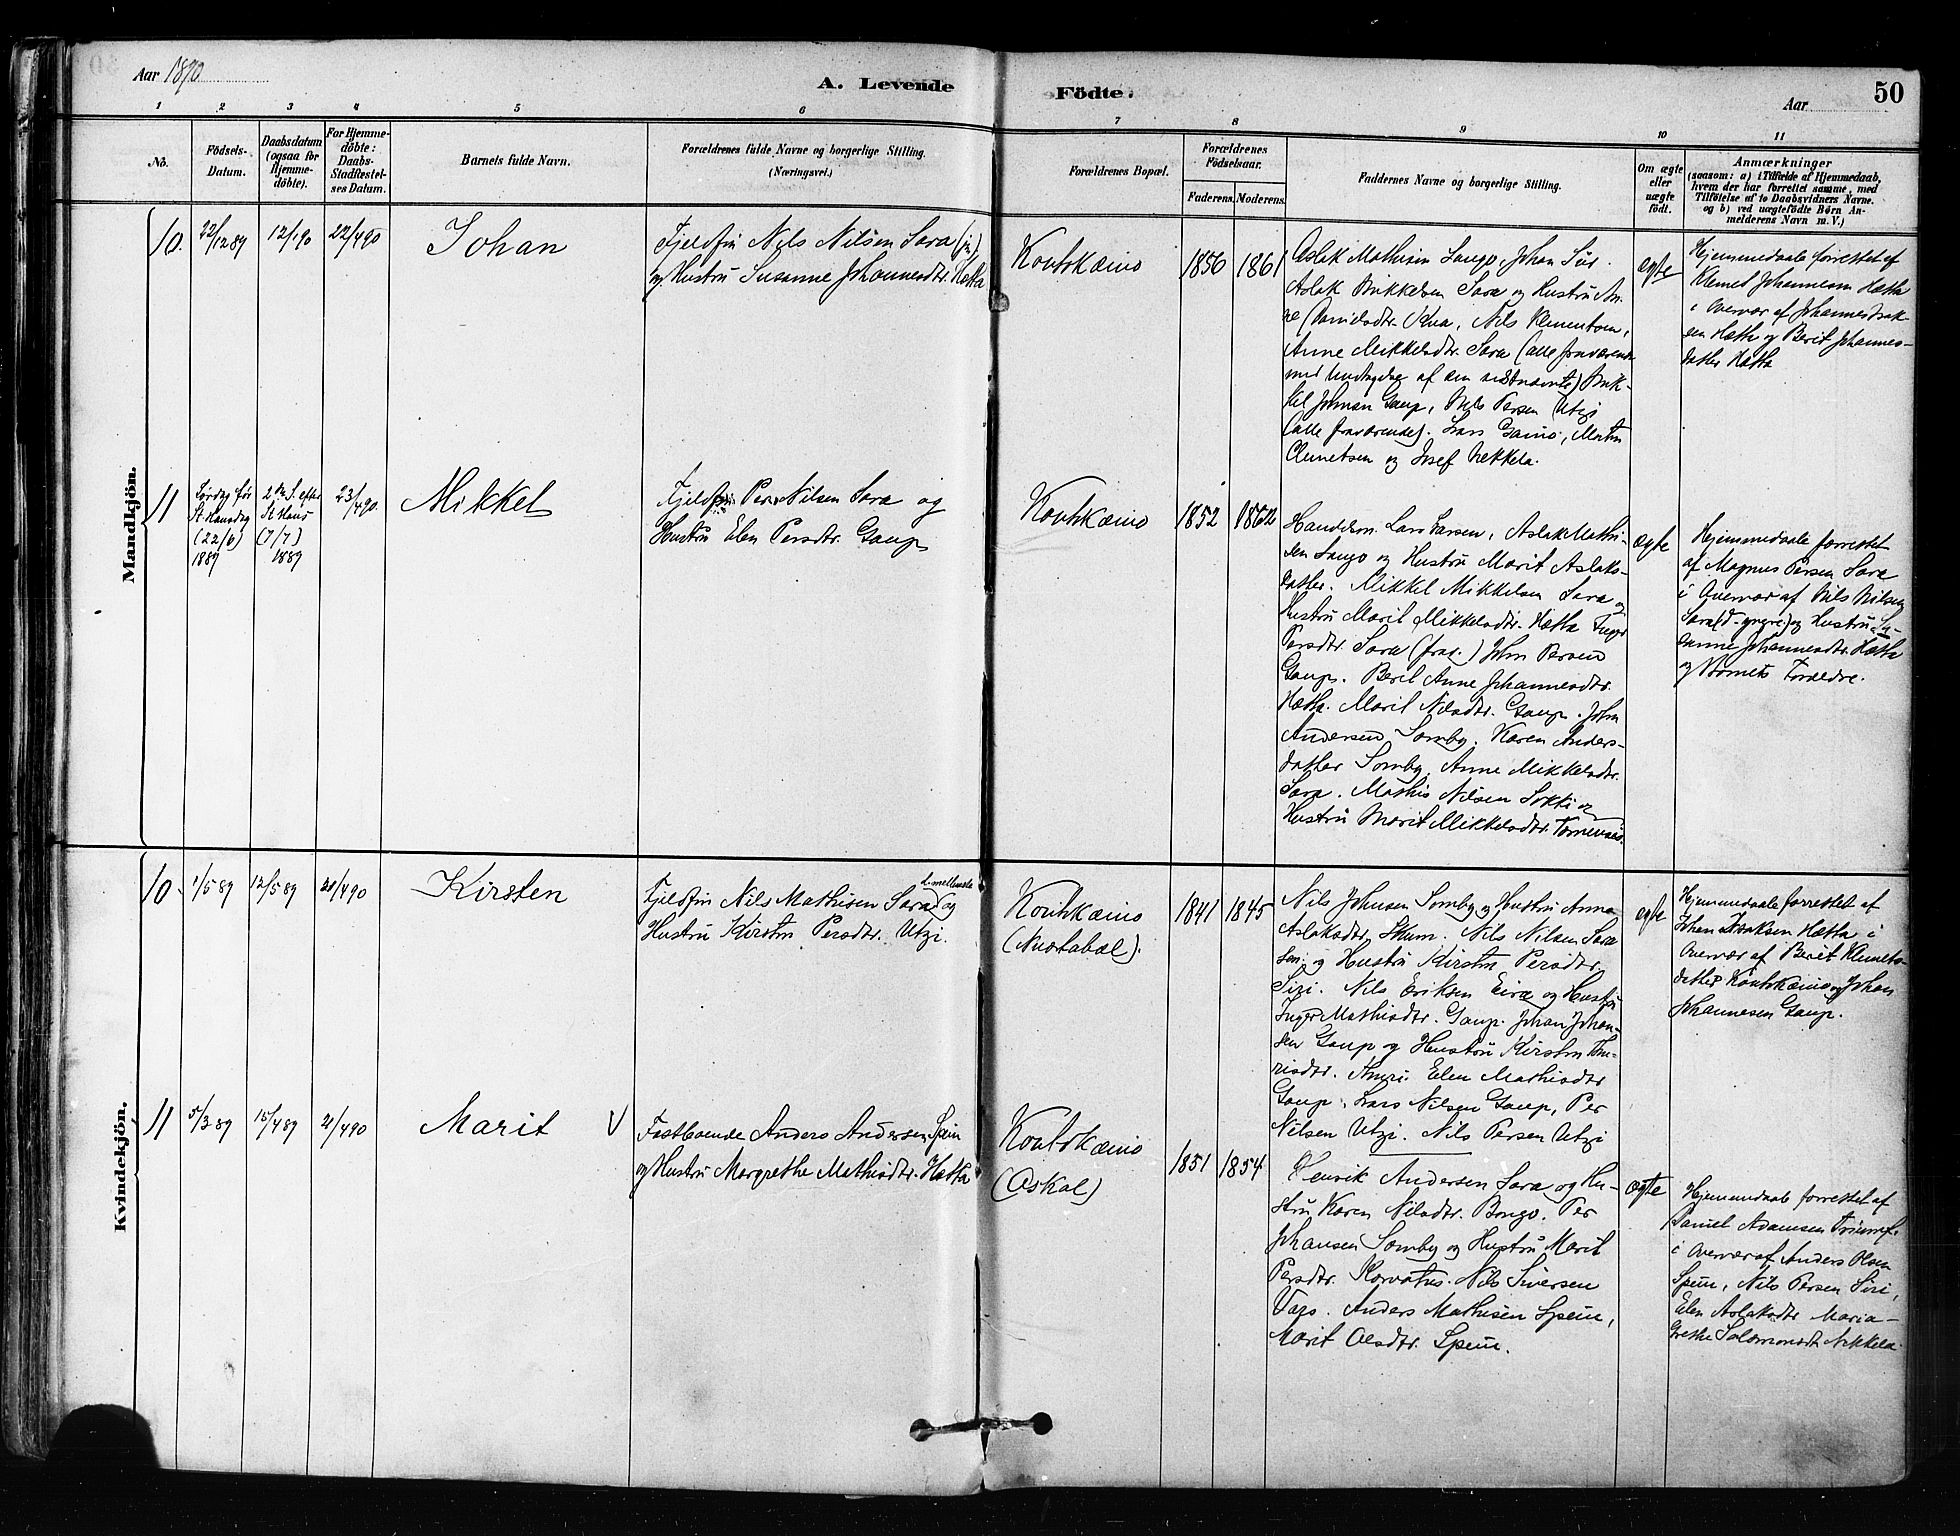 Aar 1890
A. Levende Födte.
Aar
50
1 2 3 4 5 6 7 8 9 10 11
No.
Födsels-
Datum.
Daabsdatum
(ogsaa for
Hjemme-
döbte).
For Hjemme-
döbte:
Daabs-
Stadfæstel-
ses Datum.
Barnets fulde Navn.
Forældrenes fulde Navne og borgerlige Stilling.
(Næringsvei.)
Forældrenes Bopæl.
Forældrenes
Födselsaar.
Faderens. Moderens.
Faddernes Navne og borgerlige Stilling.
Om ægte
eller
uægte
født.
Anmærkninger
(saasom: a) i Tilfælde af Hjemmedaab,
hvem der har forrettet samme, med
Tilföielse af to Daabsvidners Navne.
og b) ved uægtefödte Börn An-
melderens Navn m. V.)
Mandkjön.
10.
22/12 89
12/1 90
22/4 90
Johan
Fjeldfin Nils Nilsen Sara (jr.)
og Hustru Susanne Johannesdtr. Hætta
Koutokæino
1856
1861
Aslak Mathisen Sango, Johan
Aslak Mikkelsen Sara og Hustru An-
ne Nils Klementsen,
Anne Mikkelsdtr. Sara (alle fraværende
med Undtagelse af den sidstnævnte) Mik-
kel Johnsen Gaup, Nils Persen Utzi
(alle fraværende). Lars Gaino, Morten
Clemetsen og Josef Nekkela.
ægte
Hjemmedaab forrettet af
Klemet Johannesen Hætta
i Overvær af Johannes Isak-
sen Hætta og Berit Johannes-
datter Hætta
11
Lørdag før
St Hansdag
(22/6)
1889
2den S. efter
St Hans
(7/7)
1889
23/4 90.
Mikkel
Fjeldfin Per Nilsen Sara og
Hustru Elen Persdtr. Gaup
Koutokæino
1852
1862
Handelsm. Lars Larsen, Aslak Mathi-
sen Sango og Hustru Marit Aslaks-
datter. Mikkel Mikkelsen Sara og
Hustru Marit Mikkelsdtr. Hætta Inger
Persdtr. Sara (frav.) John Persen
Gaup. Berit Anne Johannesdtr.
Hætta. Marit Nilsdtr. Gaup. John
Andersen Somby. Karen Anders-
datter Somby. Anne Mikkelsdtr.
Sara. Mathis Nilsen Sokki og
Hustru Marit Mikkelsdtr. Tornensis.
ægte
Hjemmedaab forrettet
af Magnus Persen Sara
i Overvær af Nils Nilsen
Sara (d. yngre) og Hustru Su-
sanne Johannesdtr. Hætta
og Barnets Forældre.
Kvindekjön.
10.
1/5 89
12/5 89
20/4 90
Kirsten
Fjeldfin Nils Mathisen Sara d. mellemste og
Hustru Kirsten Persdtr. Utzi.
Koutokæino
(Nuotabæl).
1841
1845
Nils Johnsen Somby og Hustru Anne
Aslaksdtr Skum. Nils Nilsen Sara
sen. og Hustru Kirsten Persdtr.
Siri. Nils Eriksen Eira og Hustru
Inger Mathisdtr. Gaup. Johan Johan-
sen Gaup og Hustru Kirsten
Elen Mathisdtr
Gaup, Lars Nilsen Gaup, Per
Nilsen Utzi. Nils Persen Utzi
ægte
Hjemmedaab forrettet af
Johan Isaksen Hætta i
Overvær af Berit Klemets-
datter Koutokæino og Johan
Johannesen Gaup.
11
5/3 89
15/4 89
21/4 90
Marit V
Fastboende Anders Andersen Spein
og Hustru Margrethe Mathisdtr. Hætta
Koutokæino
(Askal)
1851
1854
Henrik Andersen Sara og Hu-
stru Karen Nilsdtr. Bongo. Per
Johansen Somby og Hustru Marit
Persdtr. Korvatus. Nils Siversen
Vars. Anders Mathisen Spein,
Marit Olsdtr. Spein.
ægte
Hjemmedaab forrettet af
Daniel Adamsen Triumf.
i Overvær af Anders Olsen
Spein, Nils Persen Siri,
Elen Aslaksdtr Maria-
Grethe Salamonsdtr Nikkela